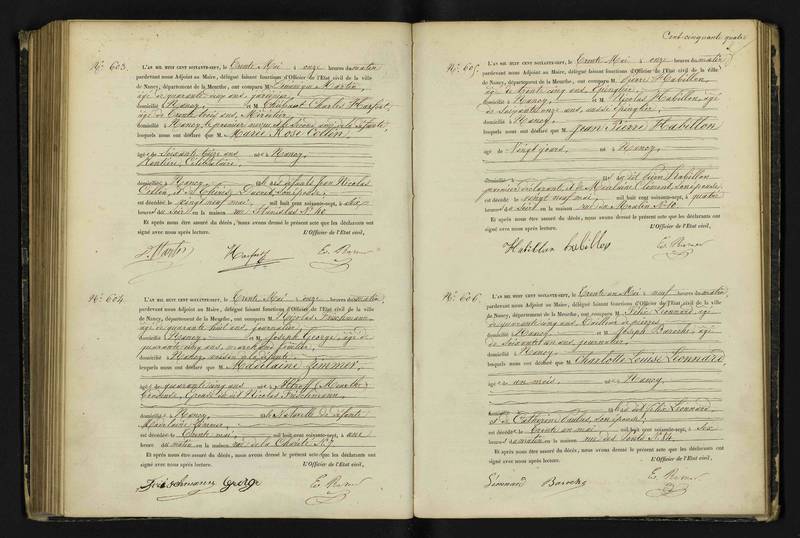 N.° 603.
L'AN MIL HUIT CENT SOIXANTE-SEPT, le Trente Mai à onze heures du matin
pardevant nous Adjoint au Maire, délégué faisant fonctions d'Officier de l'Etat civil de la ville
de Nancy, département de la Meurthe, ont comparu M. Martin,
âgé de quarante cinq ans,
domicilié à Nancy, et M. Charles Harfort,
âgé de trente trois ans,
domicilié à Nancy, le premier et le second ami de la défunte,
lesquels nous ont déclaré que M. Marie Rose Collin,
âgée de Soixante ans né à Nancy,
Rentière, Célibataire,
domiciliée à Nancy, fille des défunts Jean Nicolas
Collin, et de Thérèse son épouse,
est décédée le vingt neuf mai, mil huit cent soixante-sept, à six
heures du Soir en la maison rue Stanislas N.° 40
Et après nous être assuré du décès, nous avons dressé le présent acte que les déclarants ont
signé avec nous après lecture. L'Officier de l'Etat civil,
Martin
N.° 604.
L'AN MIL HUIT CENT SOIXANTE-SEPT, le Trente Mai à onze heures du matin,
pardevant nous Adjoint au Maire, délégué faisant fonctions d'Officier de l'Etat civil de la ville
de Nancy, département de la Meurthe, ont comparu M. Nicolas Frischmann,
âgé de quarante huit ans, journalier,
domicilié à Nancy, et M. Joseph George, âgé de
quarante cinq ans, marchand
domicilié à Nancy, voisin de la défunte,
lesquels nous ont déclaré que M. Madelaine Zimmer,
âgée de quarante cinq ans née à Altroff (Meurthe)
épouse dudit Nicolas Frischmann,
domiciliée à Nancy, fille Naturelle de défunte
Madelaine Zimmer,
est décédée le Trente mai, mil huit cent soixante-sept, à une
heure du matin en la maison rue de la Charité N.° 7
Et après nous être assuré du décès, nous avons dressé le présent acte que les déclarants ont
signé avec nous après lecture. L'Officier de l'Etat civil,
Frischmann George
Cent cinquante quatre
N.° 605.
L'AN MIL HUIT CENT SOIXANTE-SEPT, le Trente Mai à onze heures du matin,
pardevant nous Adjoint au Maire, délégué faisant fonctions d'Officier de l'Etat civil de la ville
de Nancy, département de la Meurthe, ont comparu M. Pierre Habillon,
âgé de trente cinq ans
domicilié à Nancy, et M. Nicolas Habillon âgé
de Soixante onze ans,
domicilié à Nancy,
lesquels nous ont déclaré que M. Jean Pierre Habillon
âgé de Vingt jours, né à Nancy,
fils dudit Pierre Habillon
premier déclarant, et de Clément, son épouse,
est décédé le vingt neuf mai, mil huit cent soixante-sept, à quatre
heures du Soir en la maison rue du Moulin N.° 10.
Et après nous être assuré du décès, nous avons dressé le présent acte que les déclarants ont
signé avec nous après lecture. L'Officier de l'Etat civil,
Habillon habillon
N.° 606.
L'AN MIL HUIT CENT SOIXANTE-SEPT, le Trente un Mai à neuf heures du matin,
pardevant nous Adjoint au Maire, délégué faisant fonctions d'Officier de l'Etat civil de la ville
de Nancy, département de la Meurthe, ont comparu M. Félix Léonnard, âgé
de quarante cinq ans, tailleur de pierres,
domicilié à Nancy, et M. Joseph Baroche, âgé
de Soixante un ans, journalier,
domicilié à Nancy,
lesquels nous ont déclaré que M. Charlotte Louise Léonnard,
âgée de un mois, née à Nancy,
fille dudit Félix Léonnard,
et de Catherine son épouse,
est décédée le trente un mai, mil huit cent soixante-sept, à six
heures du matin en la maison rue des Ponts N.° 54.
Et après nous être assuré du décès, nous avons dressé le présent acte que les déclarants ont
signé avec nous après lecture. L'Officier de l'Etat civil,
Léonnard Baroche